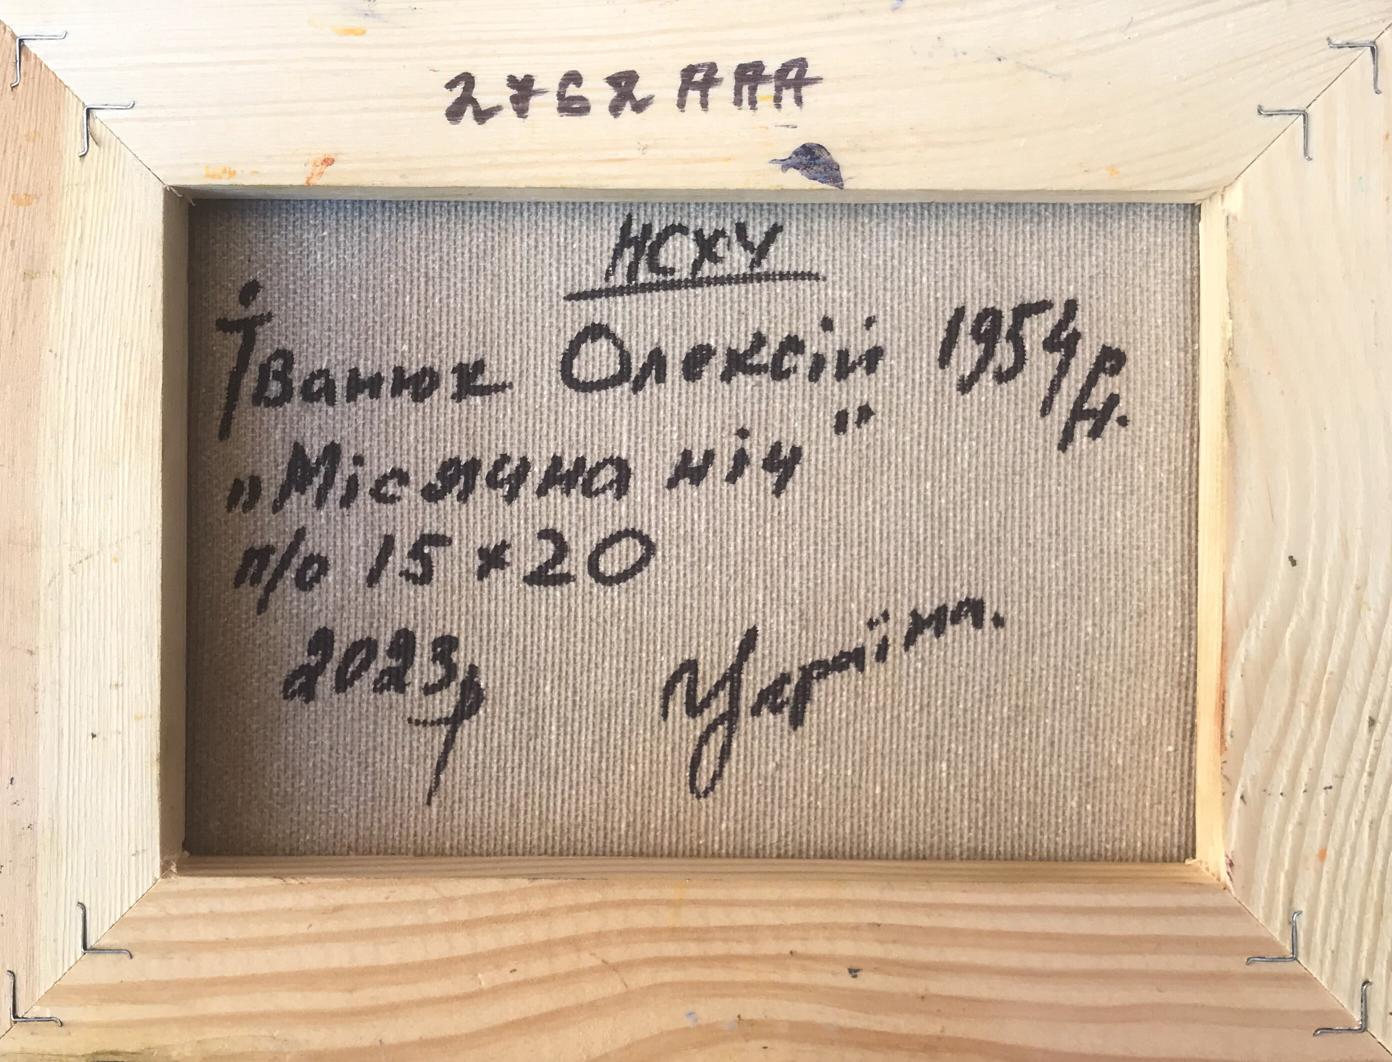 2762 AAA
НСХУ
Іванюк Олексій 1954 р.н.
„Місячна ніч"
п/о 15 × 20
2023р Україна.